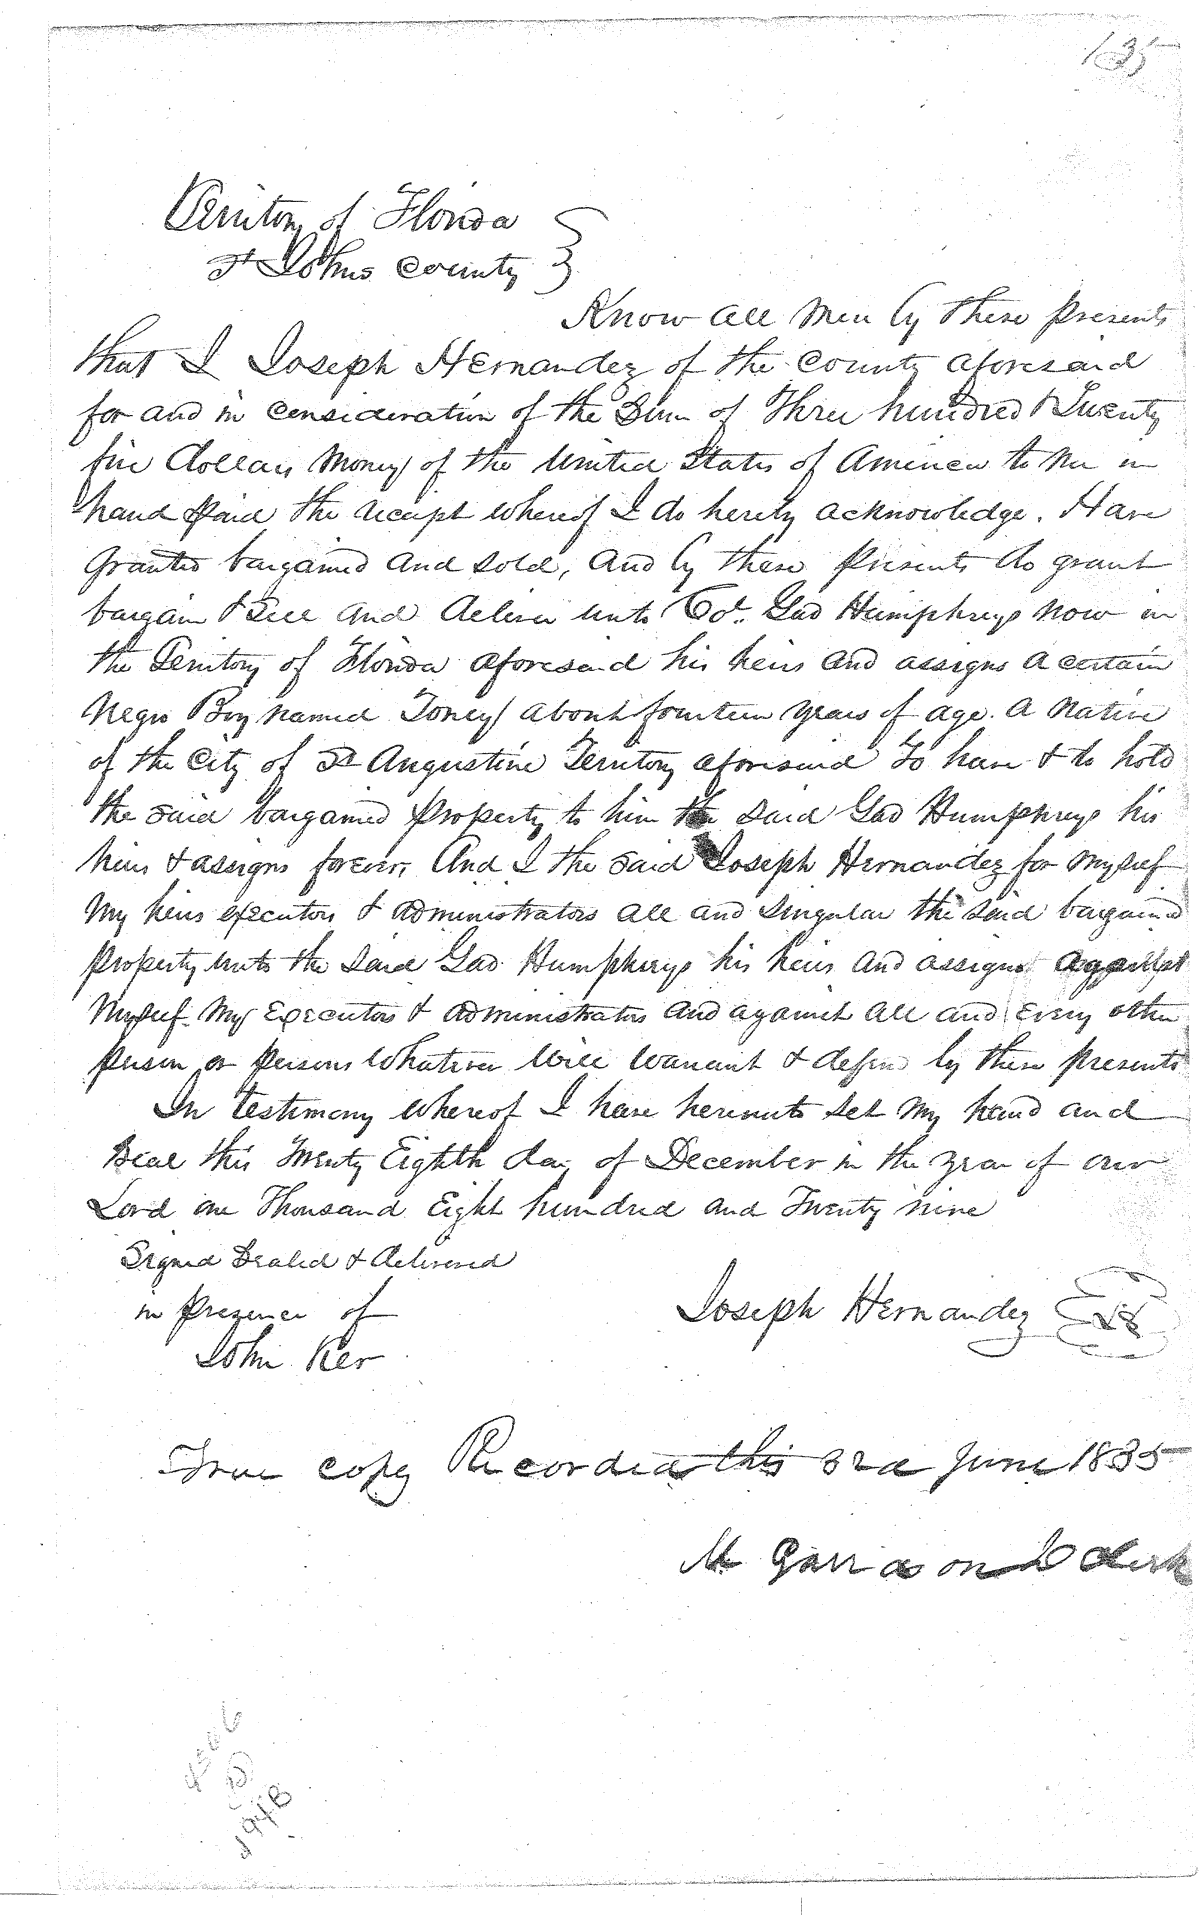 135
Territory of Florida
St Johns County
Know all men by these presents
that I Joseph Hernandez of the County aforesaid
for and in consideration of the Sum of Three hundred & Twenty
five dollars money of the United States of America to me in
hand paid the receipt whereof I do hereby acknowledge. Have
granted bargained and sold, and by these presents do grant
bargain & Sell and deliver unto Col. Gad Humphreys now in
the Territory of Florida aforesaid his heirs and assigns a certain
Negro Boy named Toney about fourteen years of age. A native
of the City of St Augustine Territory aforesaid To have & to hold
the said bargained property to him the said Gad Humphreys his
heirs & assigns forever, And I the said Joseph Hernandez for myself
my heirs executors & administrators all and singular the said bargained
property unto the said Gad Humphreys his heirs and assigns against
myself my Executors & administrators and against all and every other
person or persons whatever will warrant & defend by these presents
In testimony whereof I have hereunto set my hand and
Seal this Twenty Eighth day of December in the year of our
Lord one Thousand Eight hundred and Twenty nine
Signed Sealed & delivered
in presence of
Joseph Hernandez LS
John Ker
True copy Recorded this 3rd June 1835
M Garrason D Clerk